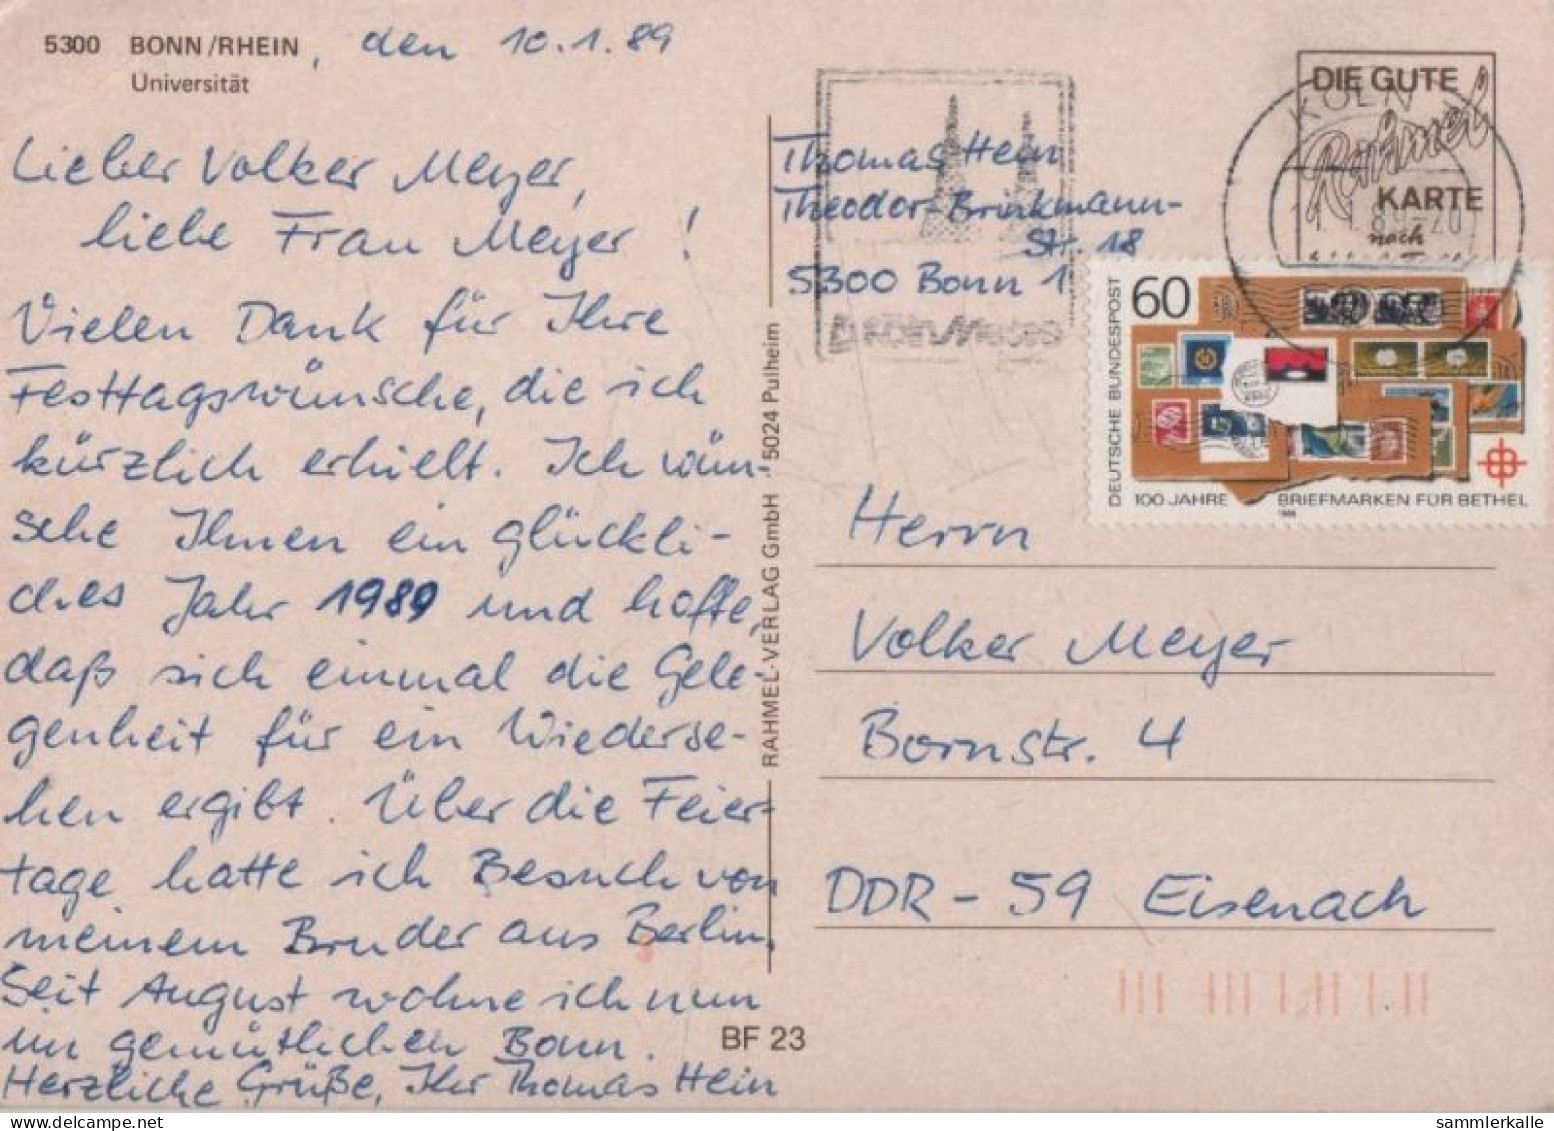 5300 BONN/RHEIN, den 10.1.89
Universität
Lieber Volker Meyer,
liebe Frau Meyer!
Vielen Dank für Ihre
Festtagswünsche, die ich
kürzlich erhielt. Ich wün-
sche Ihnen ein glückli-
ches Jahr 1989 und hoffe,
daß sich einmal die Gele-
genheit für ein Wiederse-
hen ergibt. Über die Feier-
tage hatte ich Besuch von
meinem Bruder aus Berlin.
Seit August wohne ich nun
im gemütlichen Bonn.
Herzliche Grüße, Ihr Thomas Hein
RAHMEL-VERLAG GmbH · 5024 Pulheim
BF 23
Thomas Hein
Theodor-Brinkmann-
Str. 18
5300 Bonn 1
KÖLN Messe
DIE GUTE
Rahmel
KARTE
nach
KÖLN
60
DEUTSCHE BUNDESPOST
100 JAHRE BRIEFMARKEN FÜR BETHEL
1988
Herrn
Volker Meyer
Bornstr. 4
DDR-59 Eisenach
sammlerkalle